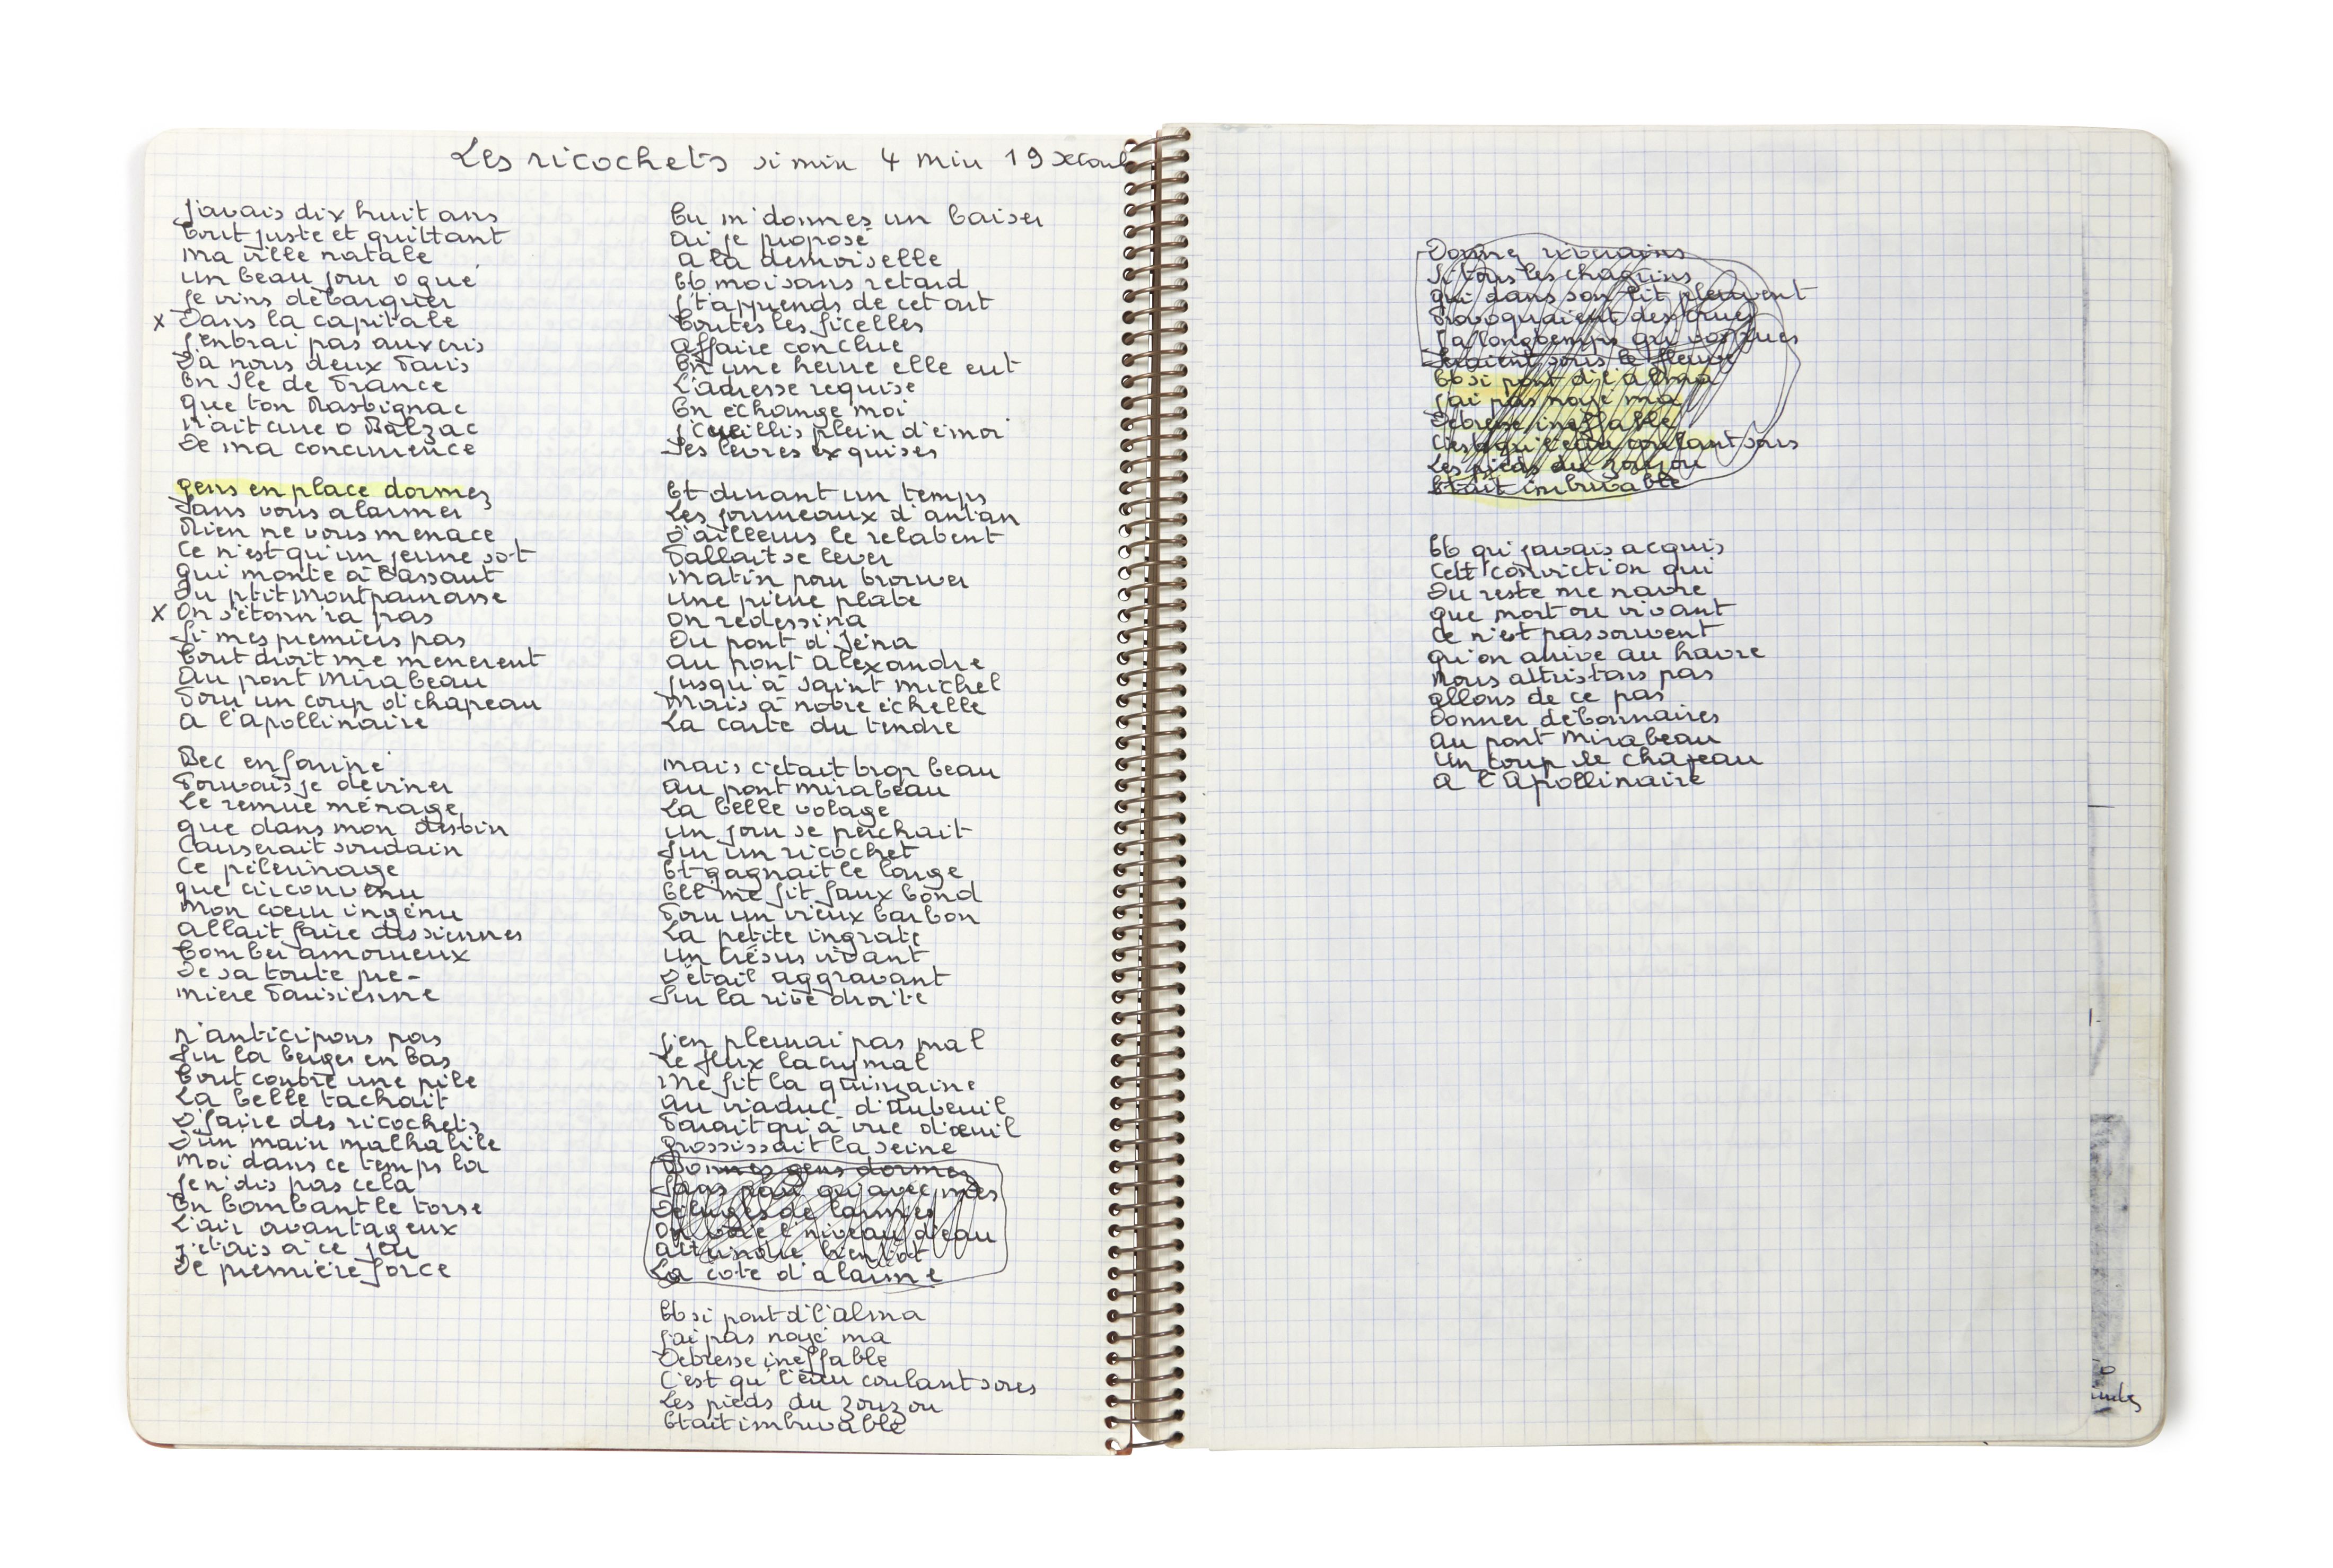 Les ricochets si min 4 min 19
J'avais dix huit ans
Tout juste et quittant
ma ville natale
un beau jour o gué
Je vins débarquer
x Dans la capitale
J'entrai pas aux cris
D'a nous deux Paris
En Ile de France
que ton Rastignac
n'ait cure o Balzac
De ma concurrence
gens en place dormez
Sans vous alarmer
Rien ne vous menace
Ce n'est qu'un jeune sot
qui monte à l'assaut
Du ptit Montparnasse
x On s'étonn'ra pas
Si mes premiers pas
Tout droit me menerent
Au pont Mirabeau
Pour un coup d'chapeau
A l'apollinaire
Bec enfariné
Pouvais je deviner
Le remue ménage
que dans mon destin
Causerait soudain
Ce pélerinage
que circonvenu
Mon cœur ingénu
allait faire des siennes
Tomber amoureux
De sa toute pre-
mière Parisienne
n'anticipons pas
Sur la berges en bas
Tout contre une pile
La belle tachait
D'faire des ricochets
D'un main malhabile
Moi dans ce temps la
Je n'dis pas cela
En bombant le torse
L'air avantageux
J'étais a ce jeu
De première force
Tu m'donnes un baiser
Ai je proposé
A la demoiselle
Et moi sans retard
J't'apprends de cet art
Toutes les ficelles
Affaire conclue
En une heure elle eut
L'adresse requise
En échange moi
J'cueillis plein d'émoi
Ses lèvres exquises
Et durant un temps
Les journeaux d'antan
D'ailleurs le relatent
Fallait se lever
Matin pour trouver
Une pierre plate
On redessina
Du pont d'Iéna
au pont Alexandre
Jusqu'à Saint Michel
Mais à notre échelle
La carte du tendre
mais c'était trop beau
Au pont mirabeau
La belle volage
un jour se perchait
Sur un ricochet
Et gagnait le large
Ell me fit faux bond
Pour un vieux barbon
La petite ingrate
Un Crésus vivant
Détail aggravant
Sur la rive droite
J'en pleurai pas mal
Le flux lacrymal
Me fit la quinzaine
Au viaduc d'Auteuil
Parait qu'à vue d'œuil
Grossissait la seine
Bonnes gens dormez
Sans peur qu'avec mes
Déluges de larmes
On voie l'niveau d'eau
Atteindre bientot
La cote d'alarme
Et si pont d'l'Alma
J'ai pas noyé ma
Detresse ineffable
C'est qu'l'eau coulant sous
Les pieds du zouzou
Etait imbuvable
riverains
Si tous les chagrins
qui dans son lit pleuvent
Provoquaient des crues
Y'a longtemps qu'vos rues
Seraient sous le fleuve
Et si pont d'l'alma
J'ai pas noyé ma
Détresse ineffable
C'est qu'l'eau coulant sous
Les pieds du zouzou
Etait imbuvable
Et qu'j'avais acquis
Cett' conviction qui
Du reste me navre
que mort ou vivant
Ce n'est pas souvent
qu'on arrive au havre
Nous attristons pas
allons de ce pas
Donner débonnaires
Au pont Mirabeau
Un coup de chapeau
A l'Apollinaire